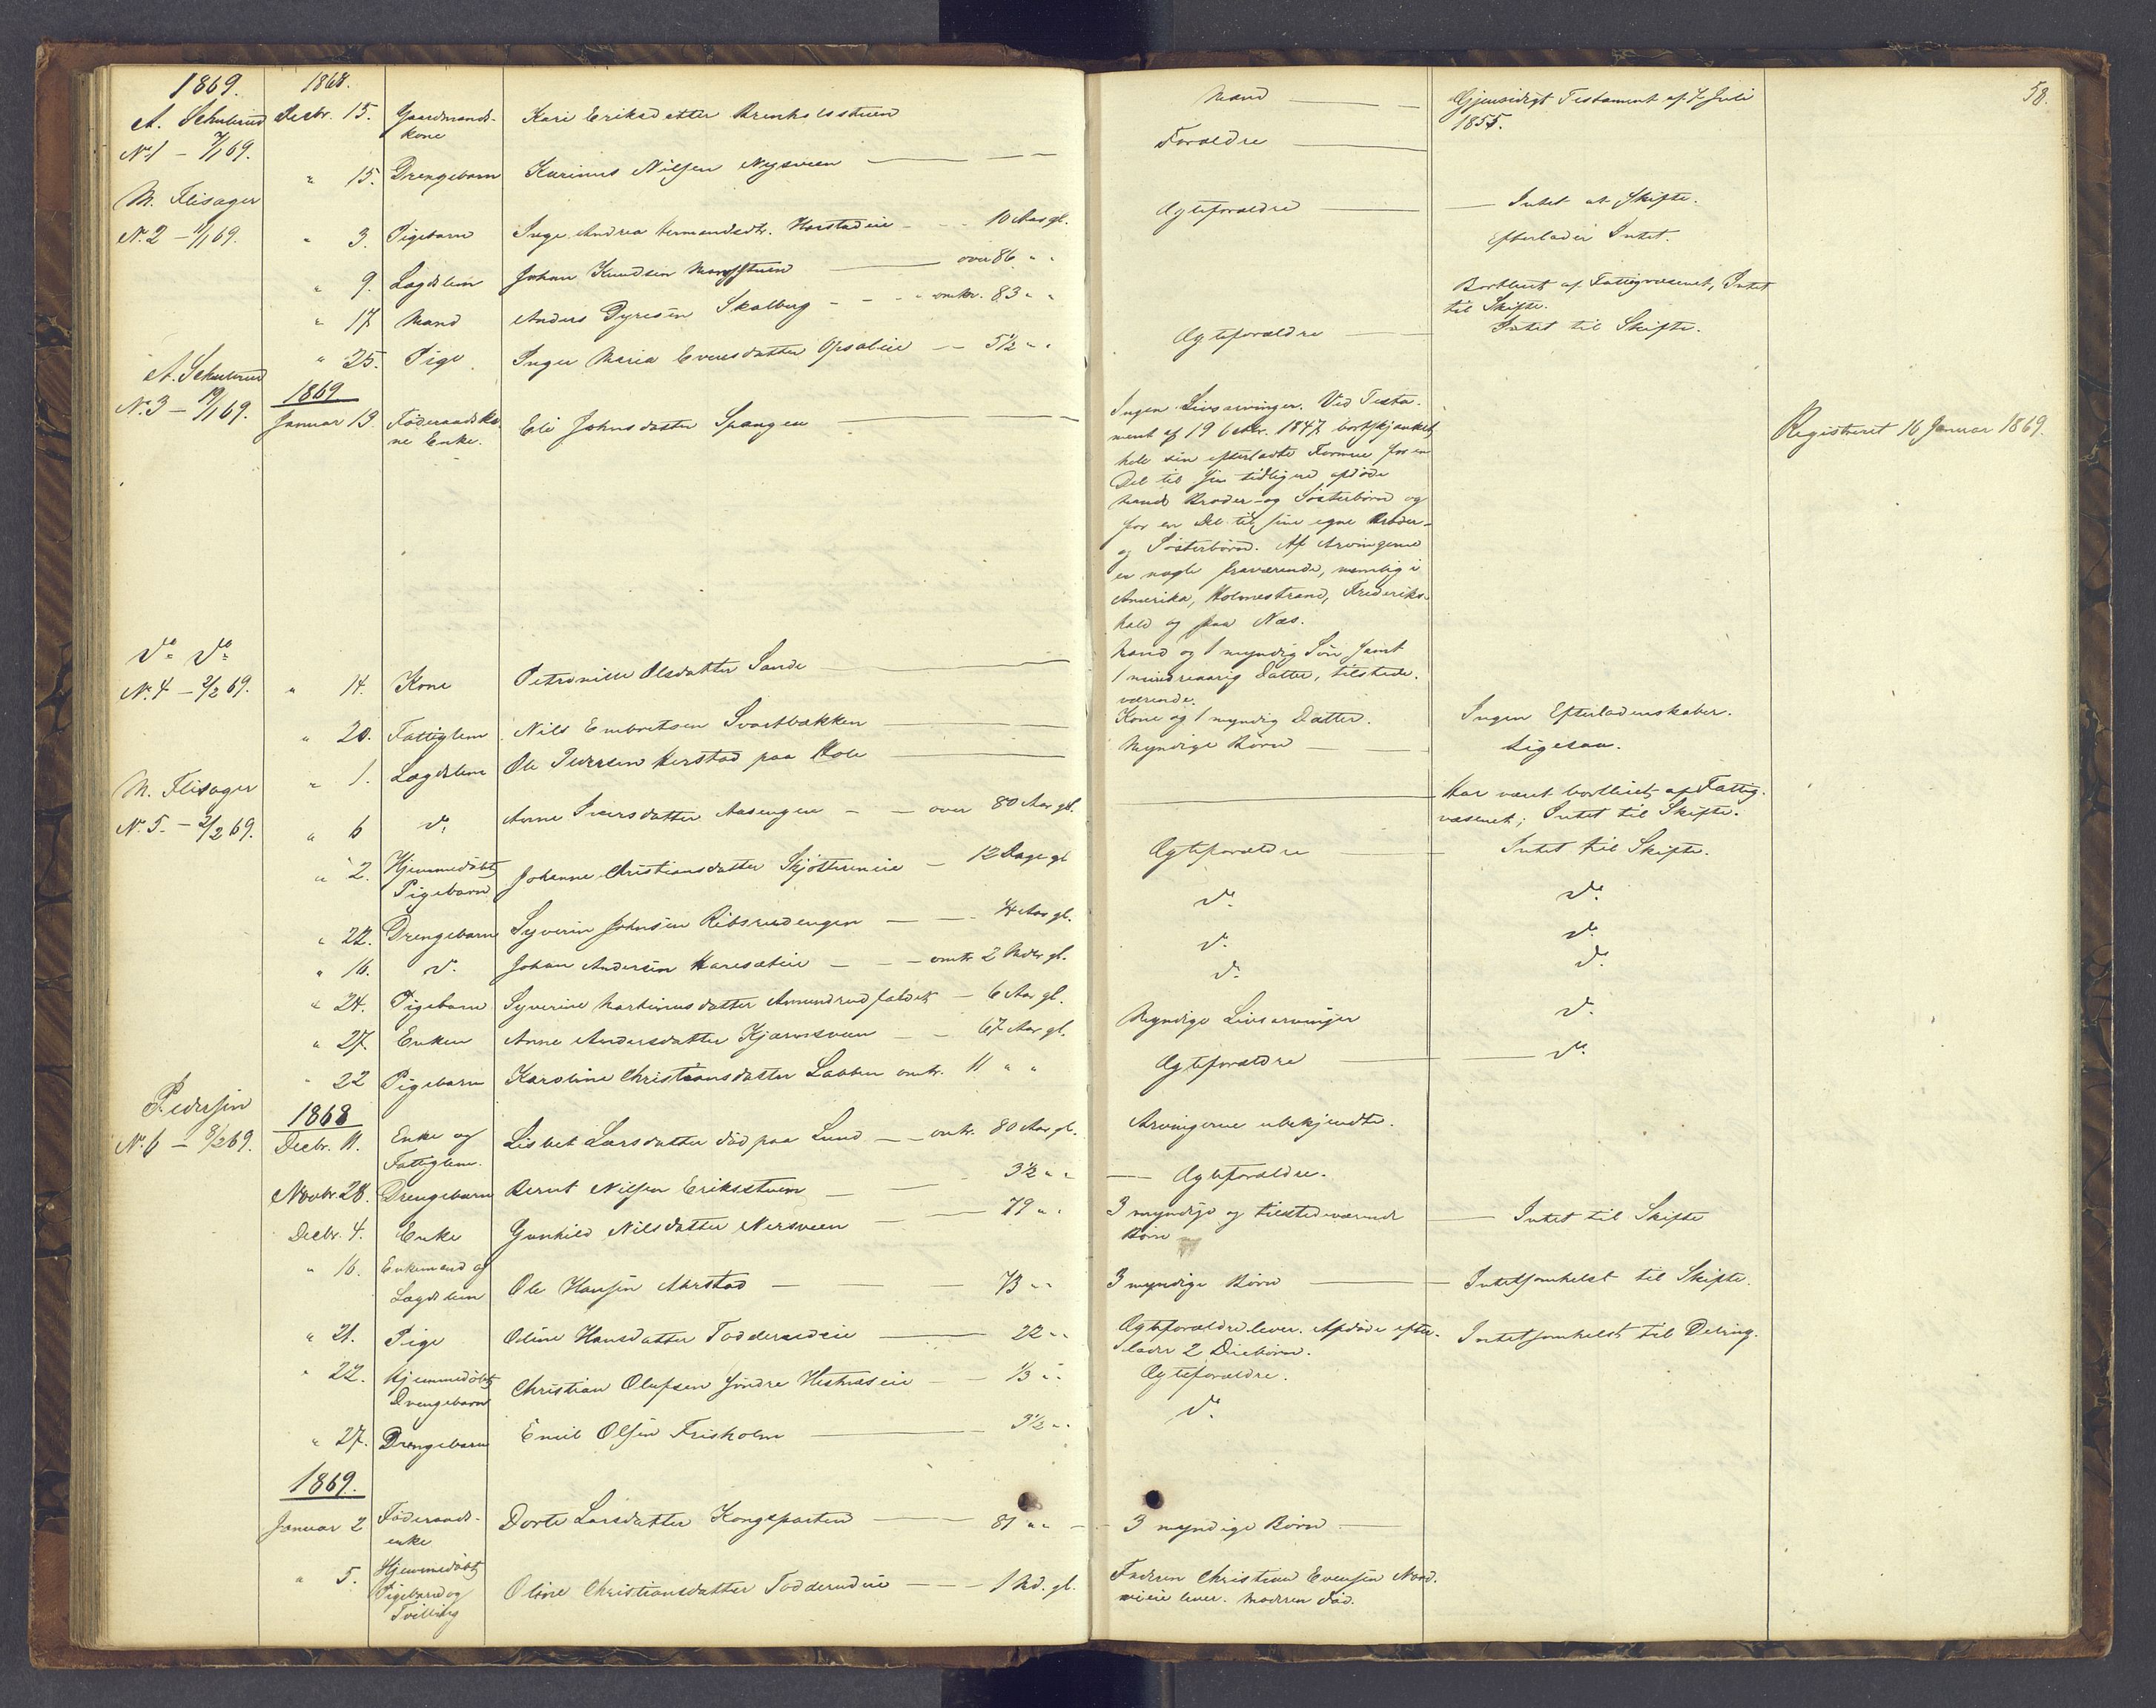 1869. 1868.
A. Schulrud Decbr. 15. Gaardmands- Kari Eriksdatter
kone
No 1 - 7/1 69.
" 15. Drengebarn Karinus Nilsen Nysveen
M. Flisager
No. 2 - 9/1 69. " 3. Pigebarn Inge Andrea Hermandsdtr. Harstadeie 10 Aar gl.
" 9. Lægdslem Johan Knudsen over 86 " "
" 17 Mand Anders Gyresen Skalberg omtr. 83 " "
" 25. Pige Inger Maria Evensdatter Opsaleie 5½ " "
A. Schulrud
1869
No. 3 - 19/1 69. Januar 13 Føderaadsko- Eli Johnsdatter Spangen
ne Enke.
do do
No. 4 - 2/2 69. " 14. Kone Petronille Olsdatter Sande
" 20. Fattiglem Nils Embretsen Svartbækken
" 1. Lægdslem Ole Iversen Kerstad paa Hole
M. Flisager
No. 5. - 2/2 69. " 6 do Anne Iversdatter Aasengen over 80 Aar gl.
" 2. Hjemmedøbt Johanne Christiansdatter Skjøttereneie 12 Dage gl
Pigebarn
" 22. Drengebarn Syverin Johnsen Ribsrudengen 4 Aar gl.
" 16. do Johan Andersen Haresæteie omtr 2 Mdr gl.
" 24. Pigebarn Syverine Martinusdatter Amundrudfaldet 6 Aar gl.
" 27. Enken Anne Andersdatter Kjærnsveen 67 Aar gl.
" 22 Pigebarn Karoline Christiansdatter Labben omtr. 11 " "
Pedersen
1868
No. 6 - 8/2 69. Decbr. 11. Enke og Lisbet Larsdatter død paa Lund omtr. 80 Aar gl.
Fattiglem.
Novbr. 28. Drengebarn Bernt Nilsen Eriksstuen 3½ " "
Decbr. 4. Enke Gunhild Nilsdatter Nersveen 79 " "
" 16. Enkemand og
Lægdslem Ole Hansen Aarstad 73 " "
" 21. Pige Oline Hansdatter Todderudeie 22 " "
" 22. Hjemmedøbt Christian Olufsen søndre Hestnæseie 1/3 " "
Drengebarn
" 27. Drengebarn Emil Olsen Frisholm 3½ " "
1869.
Januar 2 Føderaads- Dorte Larsdatter Kongsparten 81 " "
enke
" 5. Hjemmedøbt
Pigebarn og Oline Christiansdatter Todderudeie 1 Md. gl.
Tvilling
58.
Mand Gjensidigt Testament af 7 Juli
1855.
Forældre
Ægteforældre Intet at Skifte.
Efterlader Intet.
Bortleiet af Fattigvæsenet, Intet
til Skifte.
Ægteforældre Intet til Skifte.
Ingen Livsarvinger. Ved Testa-
ment af 19 Octbr. 1847 bortskjænket
hele sin efterladte Formue for en
Del til sin tidligere afdøde
Mands Broder- og Søsterbørn og
for en Del til sine egne Broder-
og Søsterbørn. Af Arvingerne
er nogle fraværende, nemlig i
Amerika, Holmestrand, Frederiks-
hald og paa Næs.
Registreret 16 Januar 1869.
Mand og 1 myndig Søn samt
1 mindreaarig Datter, tilstede-
værende.
Kone og 1 myndig Datter. Ingen Efterladenskaber.
Myndige Børn Ligesaa.
Har været bortleiet af Fattig-
væsenet; Intet til Skifte.
Ægteforældre Intet til Skifte.
do do
do do
do do
Myndige Livsarvinger do
Ægteforældre do
Arvingerne ubekjendte.
Ægteforældre.
3 myndige og tilstedeværende Intet til Skifte
Børn
3 myndige Børn Intetsomhelst til Skifte.
Ægteforældre lever. Afdøde efter- Intetsomhelst til Deling.
lader 2 Diebørn.
Ægteforældre.
do
3 myndige Børn
Faderen Christian Evensen Nord-
vieie lever. Moderen død.